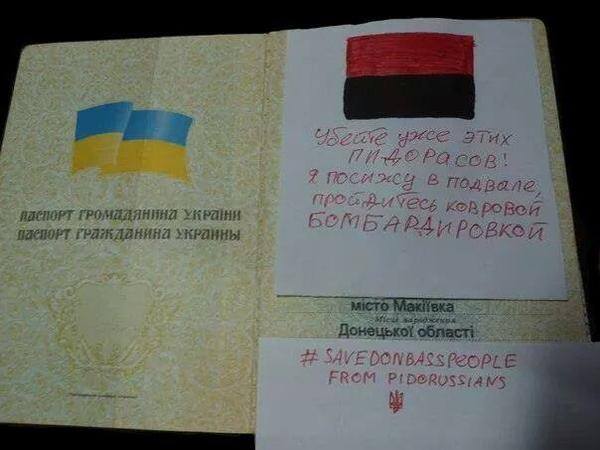 ПАСПОРТ ГРОМАДЯНИНА УКРАЇНИ
ПАСПОРТ ГРАЖДАНИНА УКРАИНЫ
Убейте уже этих
ПИДОРАСОВ!
Я посижу в подвале,
пройдитесь ковровой
БОМБАРДИРОВКОЙ
місто Макіївка
Місце народження
Донецької області
# SAVEDONBASSPEOPLE
FROM PIDORUSSIANS